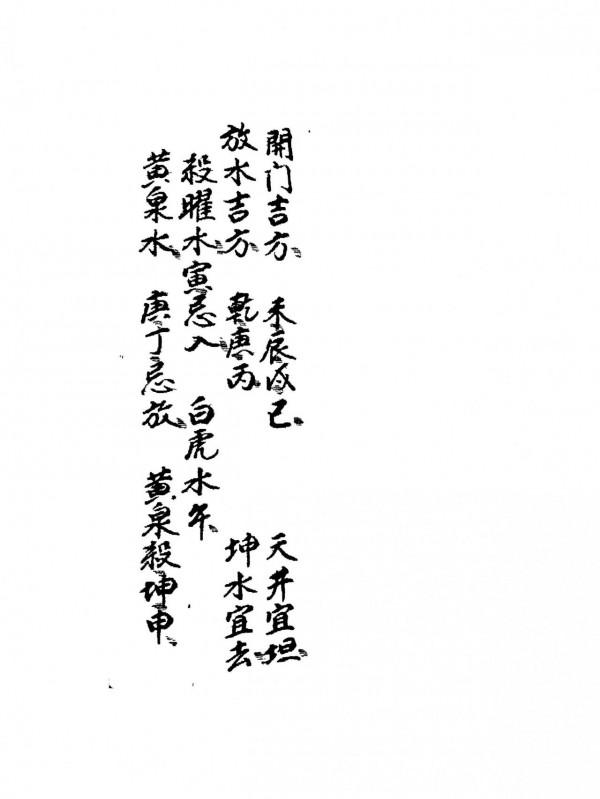 開门吉方 未辰戌巳 天井宜坦
放水吉方 乾庚丙 坤水宜去
殺曜水寅忌入 白虎水午
黄泉水 庚丁忌放 黄泉殺坤申